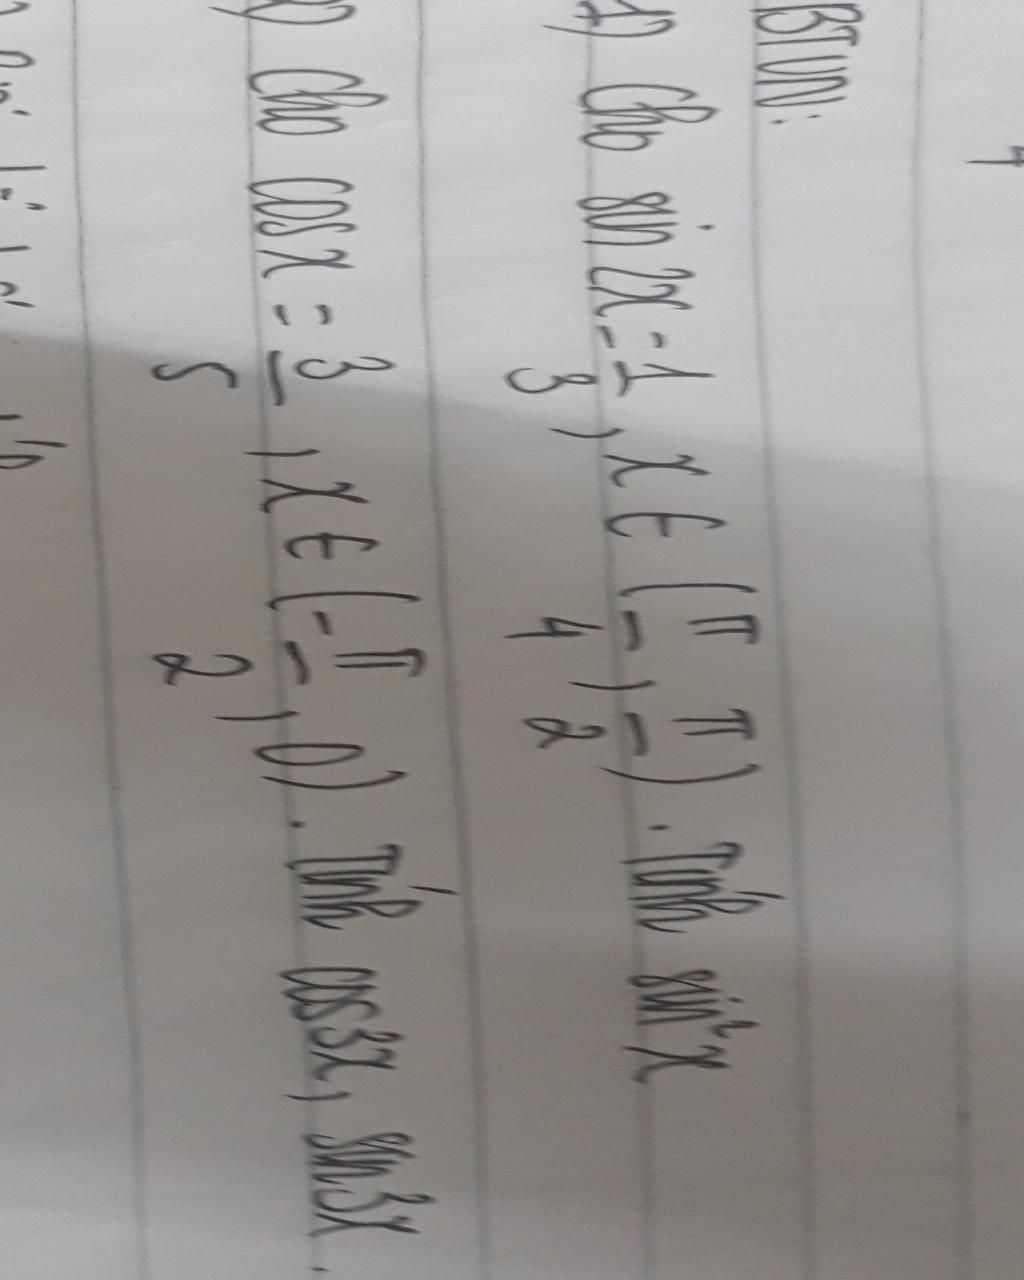 4
BTVN:
1) Cho sin 2x = 1/3, x ∈ (π/4, π/2). Tính sin²x
2) Cho cos x = 3/5, x ∈ (-π/2, 0). Tính cos3x, sin3x.